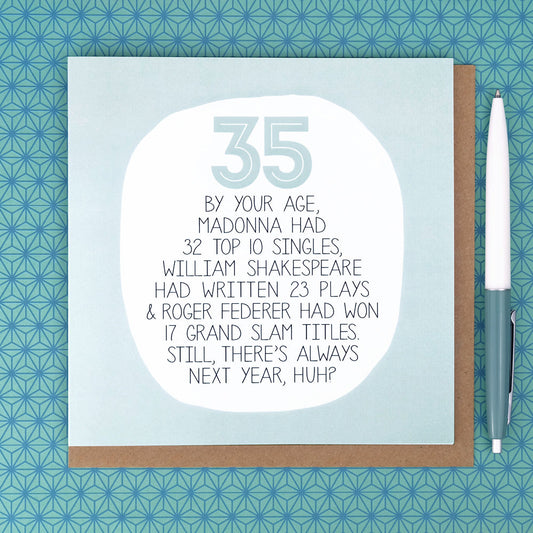 35
BY YOUR AGE,
MADONNA HAD
32 TOP 10 SINGLES,
WILLIAM SHAKESPEARE
HAD WRITTEN 23 PLAYS
& ROGER FEDERER HAD WON
17 GRAND SLAM TITLES.
STILL, THERE'S ALWAYS
NEXT YEAR, HUH?